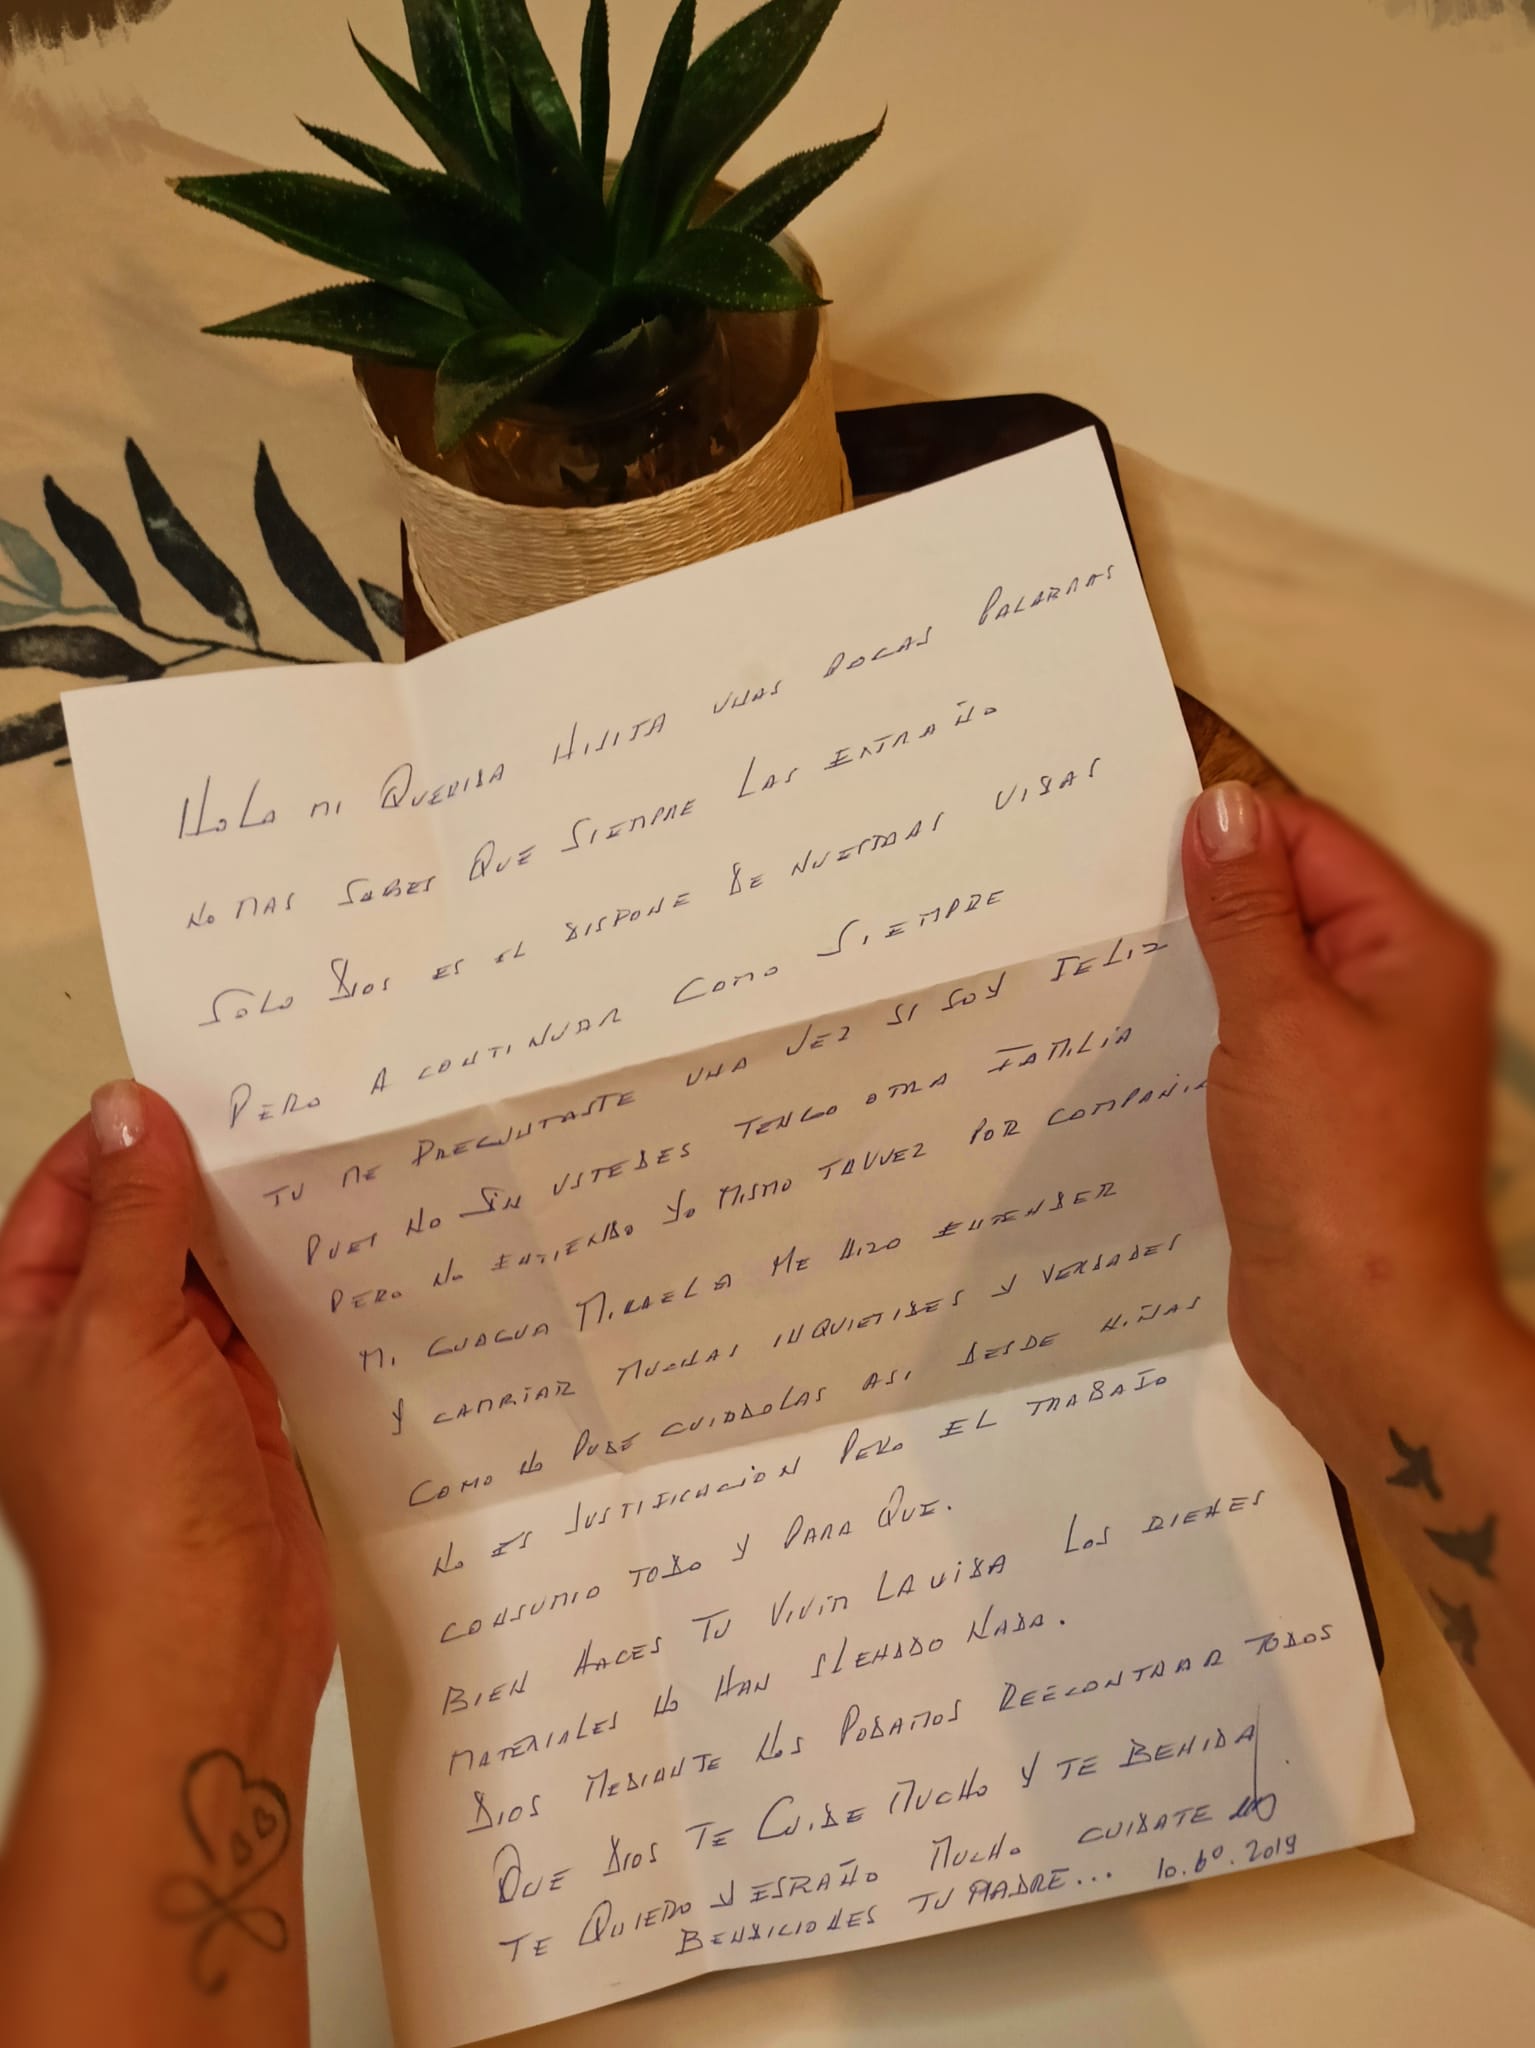 Hola mi Querida Hijita unas pocas Palabras
no mas sabes Que Siempre Las extraño
Solo Dios es el dispone de nuestras vidas
Pero a continuar como Siempre
Tu me Preguntaste una vez si soy feliz
Pues no sin ustedes tengo otra familia
Pero no entiendo yo mismo talvez por compañia
Mi guagua Mikaela me hizo entender
y cambiar muchas inquietides y verdades
Como no Pude cuiddolas asi desde niñas
No es justificacion Pero el trabajo
consumio todo y para Que.
Bien haces Tu vivir la vida Los bienes
materiales no han slenado nada.
Dios mediante nos Podamos reecontrar todos
Que Dios te Cuide mucho y te Benida
Te Quiero y esraño mucho cuidate
Bendiciones tu madre... 10.6º.2019